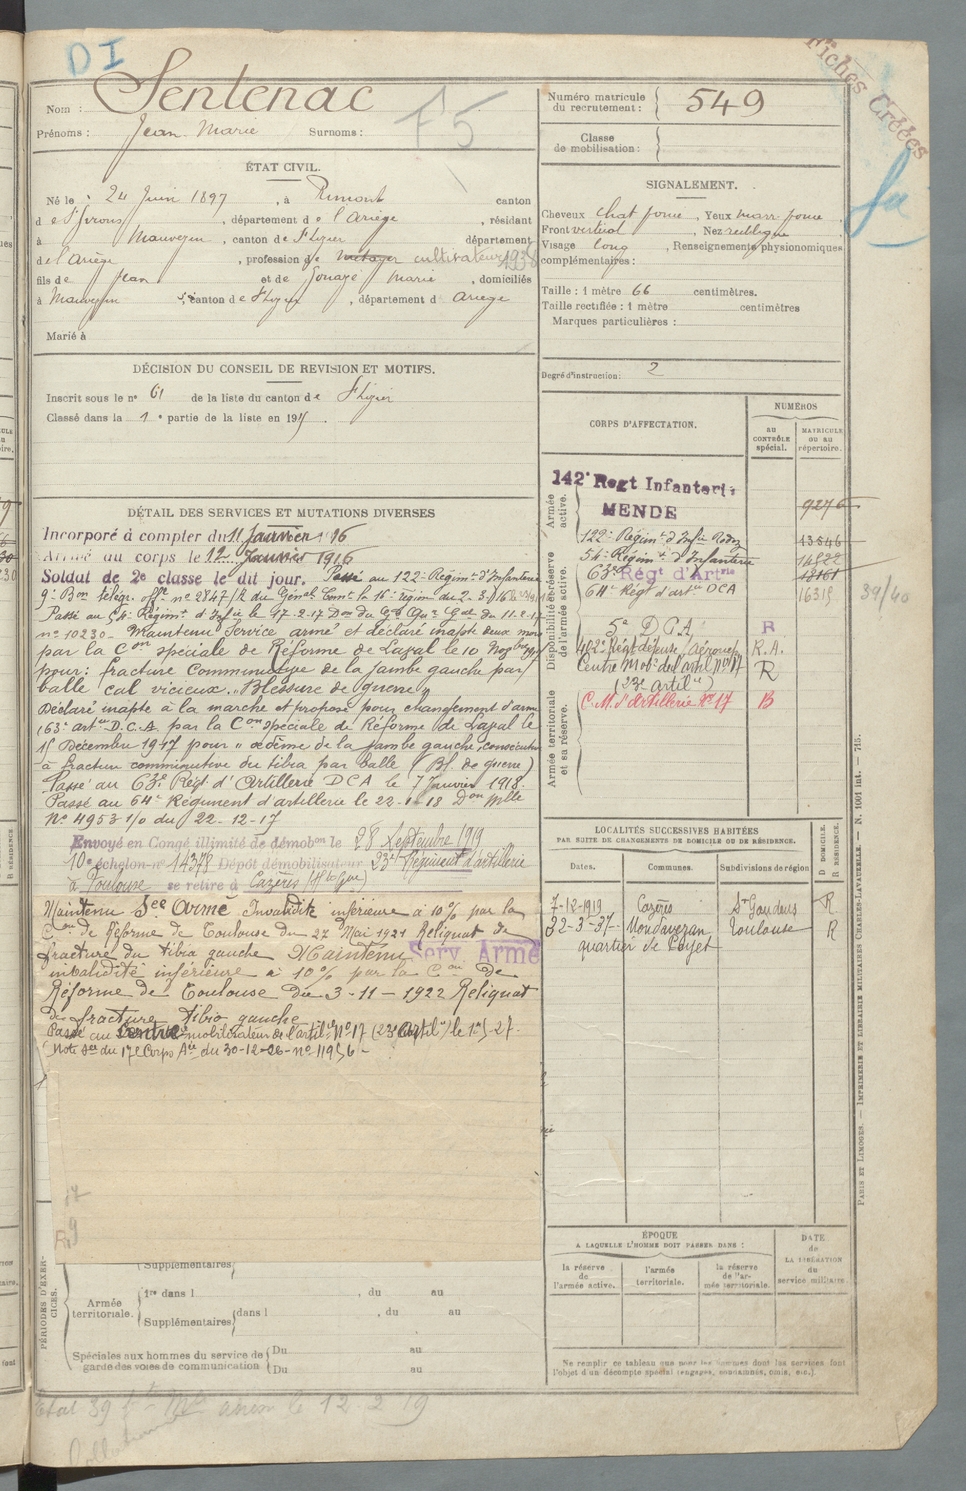 DI
Fiches Créées
Nom : Sentenac
Prénoms : Jean Marie Surnoms :
F5
Numéro matricule
du recrutement : 549
Classe
de mobilisation :
ÉTAT CIVIL.
Né le 24 Juin 1897, à Rimont canton
de St Girons, département de l'Ariège, résidant
à Mauvezin, canton de St Lizier département
de l'Ariège, profession de cultivateur 1938
fils de Jean et de Souazé Marie, domiciliés
à Mauvezin, canton de St Lizier, département d Ariège
Marié à
SIGNALEMENT.
Cheveux chat fonc, Yeux marr fonc.
Front vertical, Nez rectiligne.
Visage long, Renseignements physionomiques
complémentaires :
Taille : 1 mètre 66 centimètres.
Taille rectifiée : 1 mètre centimètres
Marques particulières :
Degré d'instruction : 2
DÉCISION DU CONSEIL DE REVISION ET MOTIFS.
Inscrit sous le n° 61 de la liste du canton de St Lizier
Classé dans la 1e partie de la liste en 191
DÉTAIL DES SERVICES ET MUTATIONS DIVERSES
Incorporé à compter du 11 Janvier 1916
Arrivé au corps le 12 Janvier 1916
Soldat de 2e classe le dit jour. Passé au 122e Régimt d'Infanterie
Passé au 54e Régimt d'Infie le 17-2-17 Don du Gal 11-2-17
n° 10230- Maintenu Service armé et déclaré inapte deux mois
par la Con spéciale de Réforme de Laval le 10
pour : fracture comminutive de la jambe gauche par
balle cal vicieux. "Blessure de guerre"
Déclaré inapte à la marche et proposé pour changement d'arme
(63e artie D.C.A. par la Con spéciale de Réforme de Laval le
15 Décembre 1917 pour " œdème de la jambe gauche, consécutif
à fracture comminutive du tibia par balle (Bl. de guerre)
Passé au 63e Régt d'Artillerie DCA le 7 Janvier 1918.
Passé au 64e Régiment d'artillerie le 22-1-18 Don Mlle
N° 4953 1/0 du 22-12-17
Envoyé en Congé illimité de démobon le 28 Septembre 1919
10e échelon n° 14378 Dépôt démobilisateur 23e Régiment d'artillerie
à Toulouse se retire à Cazères (Hte Gne)
Maintenu See Armé Invalidité inférieure à 10% par la
Con de Réforme de Toulouse du 27 Mai 1921 Reliquat de
fracture du tibia gauche Maintenu Serv. Armé
invalidité inférieure à 10% par la Con de
Réforme de Toulouse du 3-11-1922 Reliquat
de fracture tibia gauche
Passé au Centre mobilisateur de l'artie N° 17 (23e Artil) le 1er 5-27.
Note See du 17e Corps Aée du 30-12-26- n° 11956-
CORPS D'AFFECTATION.
NUMÉROS
AU CONTRÔLE spécial.
MATRICULE OU AU répertoire.
Armée active.
142e Regt Infanterie
MENDE 9276
Disponibilité et réserve de l'armée active.
122e Régimt d'Infie Rodez 13646
54e Régimt d'Infanterie
63e Régt d'Artrie 18161
64e Régt d'artie DCA 16319 39/40
5e D C A R
402e Régt R.A.
Centre Mob. de l'Artil N° 17 R
(23e Artil)
Armée territoriale et sa réserve.
C.M. d'Artillerie N° 17 B
LOCALITÉS SUCCESSIVES HABITÉES
PAR SUITE DE CHANGEMENTS DE DOMICILE OU DE RÉSIDENCE.
D DOMICILE.
R RÉSIDENCE.
Dates. Communes. Subdivisions de région
7-12-1919 Cazères St Gaudens R
22-3-37- Mondavezan Toulouse R
quartier de
ÉPOQUE
A LAQUELLE L'HOMME DOIT PASSER DANS :
DATE
de
LA LIBÉRATION
du
service militaire.
la réserve
de
l'armée active.
l'armée
territoriale.
la réserve
de l'ar-
mée territoriale.
Ne remplir ce tableau que pour les hommes dont les services font
l'objet d'un décompte spécial (engagés, condamnés, omis, etc.).
PÉRIODES D'EXER-
CICES.
Supplémentaires
Armée
territoriale.
1re dans l , du au
Supplémentaires dans l , du au
Spéciales aux hommes du service de
garde des voies de communication
Du au
Du au
PARIS ET LIMOGES. — IMPRIMERIE ET LIBRAIRIE MILITAIRES CHARLES-LAVAUZELLE. — N. 1001 int. — 715.